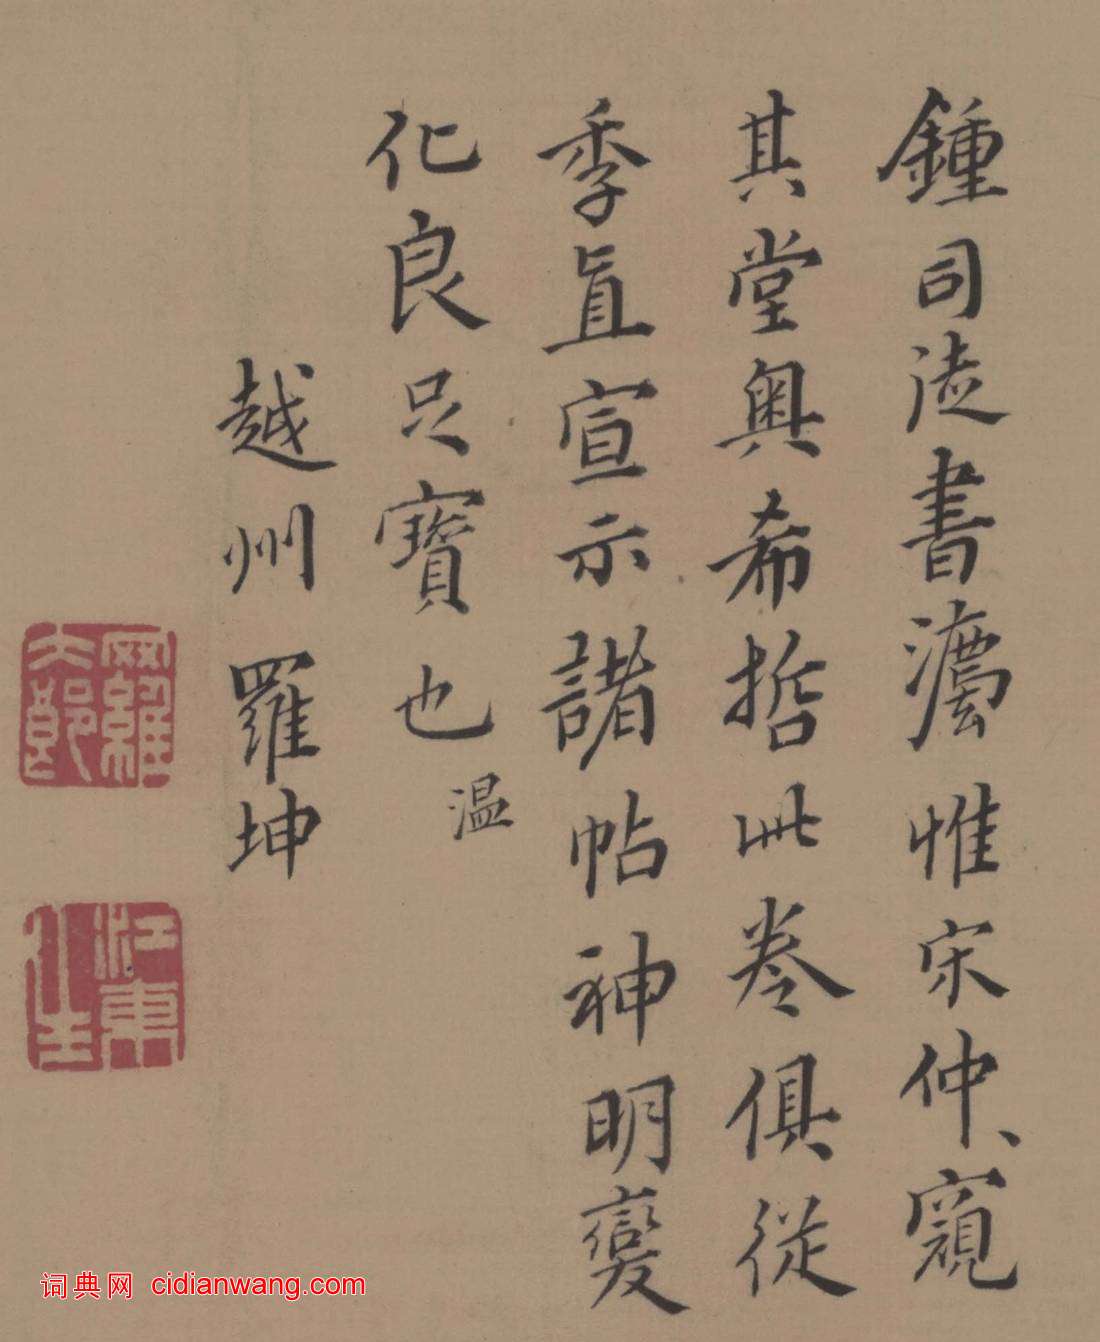 鍾司徒書灋惟宋仲、窺
其堂奧希哲此卷俱從
季直宣示諸帖神明變
化良足寶也温
越州羅坤
羅大郎
江東
词典网 cidianwang.com